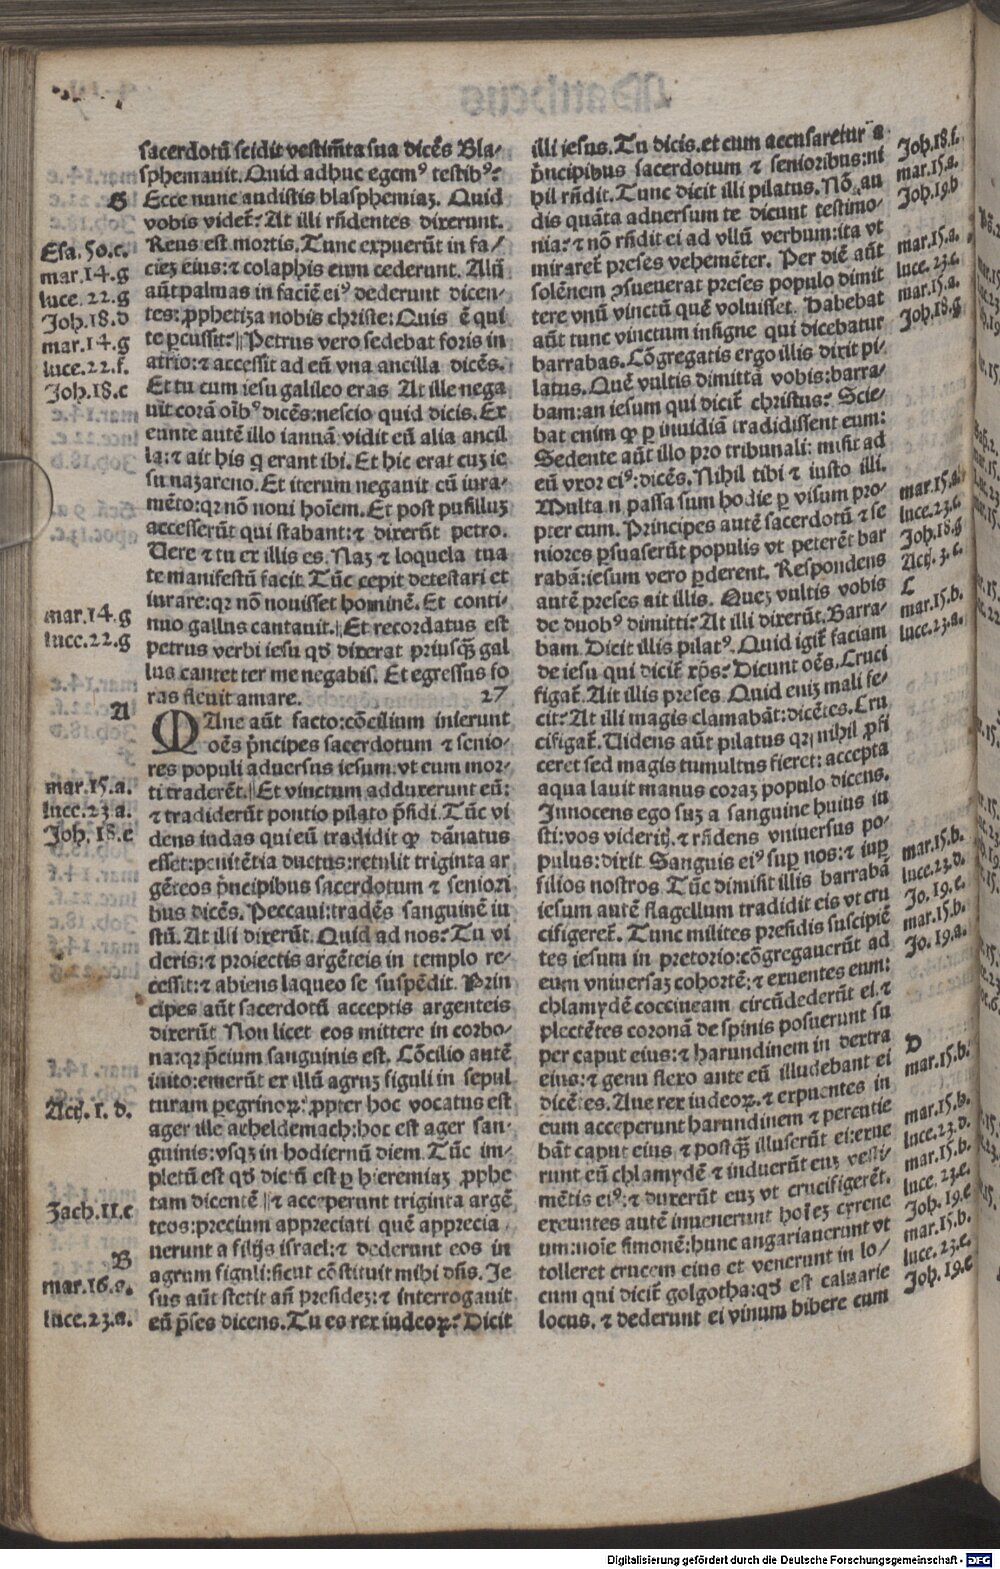 sacerdotū scidit vestim̄ta sua dicēs Bla-
sphemauit. Quid adhuc egemꝰ testibꝰ?
G
Ecce nunc audistis blasphemiaꝫ. Quid
vobis videt᷑? At illi rn̄dentes dixerunt.
Reus est mortis. Tunc expuerūt in fa/
ciez eius: ⁊ colaphis eum cederunt. Alij
aūt palmas in faciē eiꝰ dederunt dicen-
tes: ꝓphetiza nobis christe: Quis ē qui
te ꝑcussit? ‖ Petrus vero sedebat foris in
atrio: ⁊ accessit ad eū vna ancilla dicēs.
Et tu cum iesu galileo eras At ille nega
uit corā oībꝰ dicēs: nescio quid dicis. Ex
eunte autē illo ianuā vidit eū alia ancil
la: ⁊ ait his q̇ erant ibi. Et hic erat cuꝫ ie
su nazareno. Et iterum negauit cū iura-
mēto: qꝛ nō noui hoīem. Et post pusilluꝫ
accesserūt qui stabant: ⁊ dixerūt petro.
Uere ⁊ tu ex illis es. Naꝫ ⁊ loquela tua
te manifestū facit. Tūc cepit detestari et
iurare: qꝛ nō nouisset hominē. Et conti-
nuo gallus cantauit. ‖ Et recordatus est
petrus verbi iesu qd̄ dixerat priusq̄ꝫ gal
lus cantet ter me negabis. Et egressus fo
ras fleuit amare. 27
A
MAne aūt facto: cōcilium inierunt
oēs p̄ncipes sacerdotum ⁊ senio-
res populi aduersus iesum. vt eum mor-
ti traderēt. ‖ Et vinctum adduxerunt eū:
⁊ tradiderūt pontio pilato p̄sidi. Tūc vi
dens iudas qui eū tradidit ꝙ dānatus
esset: penitētia ductus: retulit triginta ar
gēteos p̄ncipibus sacerdotum ⁊ seniori
bus dicēs. Peccaui: tradēs sanguinē iu
stū. At illi dixerūt. Quid ad nos? Tu vi
deris: ⁊ proiectis argēteis in templo re-
cessit: ⁊ abiens laqueo se suspēdit. Prin
cipes aūt sacerdotū acceptis argenteis
dixerūt Non licet eos mittere in corbo-
na: qꝛ p̄cium sanguinis est. Cōcilio autē
inito: emerūt ex illū agruꝫ figuli in sepul
turam ꝑegrinoꝝ: ꝓpter hoc vocatus est
ager ille acheldemach: hoc est ager san-
guinis: vsqꝫ in hodiernū diem. Tūc im-
pletū est qd̄ dictū est ꝑ hieremiaꝫ ꝓphe
tam dicentē ‖ ⁊ acceperunt triginta argē
teos: precium appreciati quē apprecia
uerunt a filijs israel: ⁊ dederunt eos in
B
agrum figuli: sicut cōstituit mihi dn̄s. Je
sus aūt stetit an̄ presideꝫ: ⁊ interrogauit
eū p̄ses dicens. Tu es rex iudeoꝝ? Dicit
Esa. 50.c.
mar.14.g
luce.22.g
Joh.18.d
mar.14.g
luce.22.f.
Joh.18.c
mar.14.g
luce.22.g
mar.15.a.
luce.23.a
Joh. 18.e
Act. 1. d.
Zach.11.c
mar.16.a.
luce.23.a.
illi iesus. Tu dicis. et cum accusaretur a
p̄ncipibus sacerdotum ⁊ senioribus: ni
hil rn̄dit. Tunc dicit illi pilatus. Nō au
dis quāta aduersum te dicunt testimo-
nia? ⁊ nō rn̄dit ei ad vllū verbum: ita vt
miraret᷑ preses vehemēter. Per diē aūt
solēnem ꝯsueuerat preses populo dimit
tere vnū vinctū quē voluisset. Habebat
aūt tunc vinctum insigne qui dicebatur
barrabas. Cōgregatis ergo illis dixit pi-
latus. Quē vultis dimittā vobis: barra-
bam: an iesum qui dicit᷑ christus? Scie-
bat enim ꝙ ꝑ inuidiā tradidissent eum:
Sedente aūt illo pro tribunali: misit ad
eū vxor eiꝰ: dicēs. Nihil tibi ⁊ iusto illi.
Multa n̄ passa sum hodie ꝑ visum pro-
pter eum. Principes autē sacerdotū ⁊ se
niores ꝑsuaserūt populis vt peterēt bar
rabā: iesum vero ꝑderent. Respondens
autē preses ait illis. Queꝫ vultis vobis
de duobꝰ dimitti? At illi dixerūt. Barra-
bam. Dicit illis pilatꝰ. Quid igit᷑ faciam
de iesu qui dicit᷑ xp̄s? Dicunt oēs. Cruci
figat᷑. Ait illis preses. Quid eniꝫ mali fe-
cit? At illi magis clamabāt: dicētes. Cru
cifigat᷑. Uidens aūt pilatus qꝛ nihil ꝓfi
ceret sed magis tumultus fieret: accepta
aqua lauit manus coraꝫ populo dicens.
Innocens ego suꝫ a sanguine huius iu
sti: vos videritꝭ. ⁊ rn̄dens vniuersus po-
pulus: dixit. Sanguis eiꝰ suꝑ nos: ⁊ suꝑ
filios nostros. Tūc dimisit illis barrabā
iesum autē flagellum tradidit eis vt cru
cifigeret᷑. Tunc milites presidis suscipiē
tes iesum in pretorio: cōgregauerūt ad
eum vniuersaꝫ cohortē: ⁊ exuentes eum:
chlamydē coccineam circūdederūt ei. ⁊
plectētes coronā de spinis posuerunt su
per caput eius: ⁊ harundinem in dextra
eius: ⁊ genu flexo ante eū illudebant ei
dicētes. Aue rex iudeoꝝ. ⁊ expuentes in
eum acceperunt harundinem ⁊ percutie
bāt caput eius. ⁊ postq̄ꝫ illuserūt ei: exue
runt eū chlamydē ⁊ induerūt euꝫ vesti-
mētis eiꝰ: ⁊ duxerūt euꝫ vt crucifigerēt.
exeuntes autē inuenerunt hoīeꝫ cyrene
um: noīe simonē: hunc angariauerunt vt
tolleret crucem eius et venerunt in lo/
cum qui dicit᷑ golgotha: qd̄ est caluarie
locus. ⁊ dederunt ei vinum bibere cum
Joh.18.f.
mar.15.a.
Joh.19.b
mar.15.a.
luce.23.c.
mar.15.a.
Joh.18.g
mar.15.a.
luce.23.c.
Joh.18.g
Act. 3. c.
C
mar.15.b.
luce.23.a.
mar.15.b.
luce.23.d.
Jo. 19.c.
mar.15.b.
Jo. 19.a.
D
mar.15.b.
mar.15.b.
luce.23.d.
mar.15.b.
luce. 23.e.
Joh.19.c
mar.15.b.
luce.23.e.
Joh.19.c
Digitalisierung gefördert durch die Deutsche Forschungsgemeinschaft - DFG